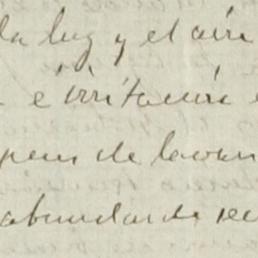 la luz y el aire
e irritación
pues de lavar
abundante se